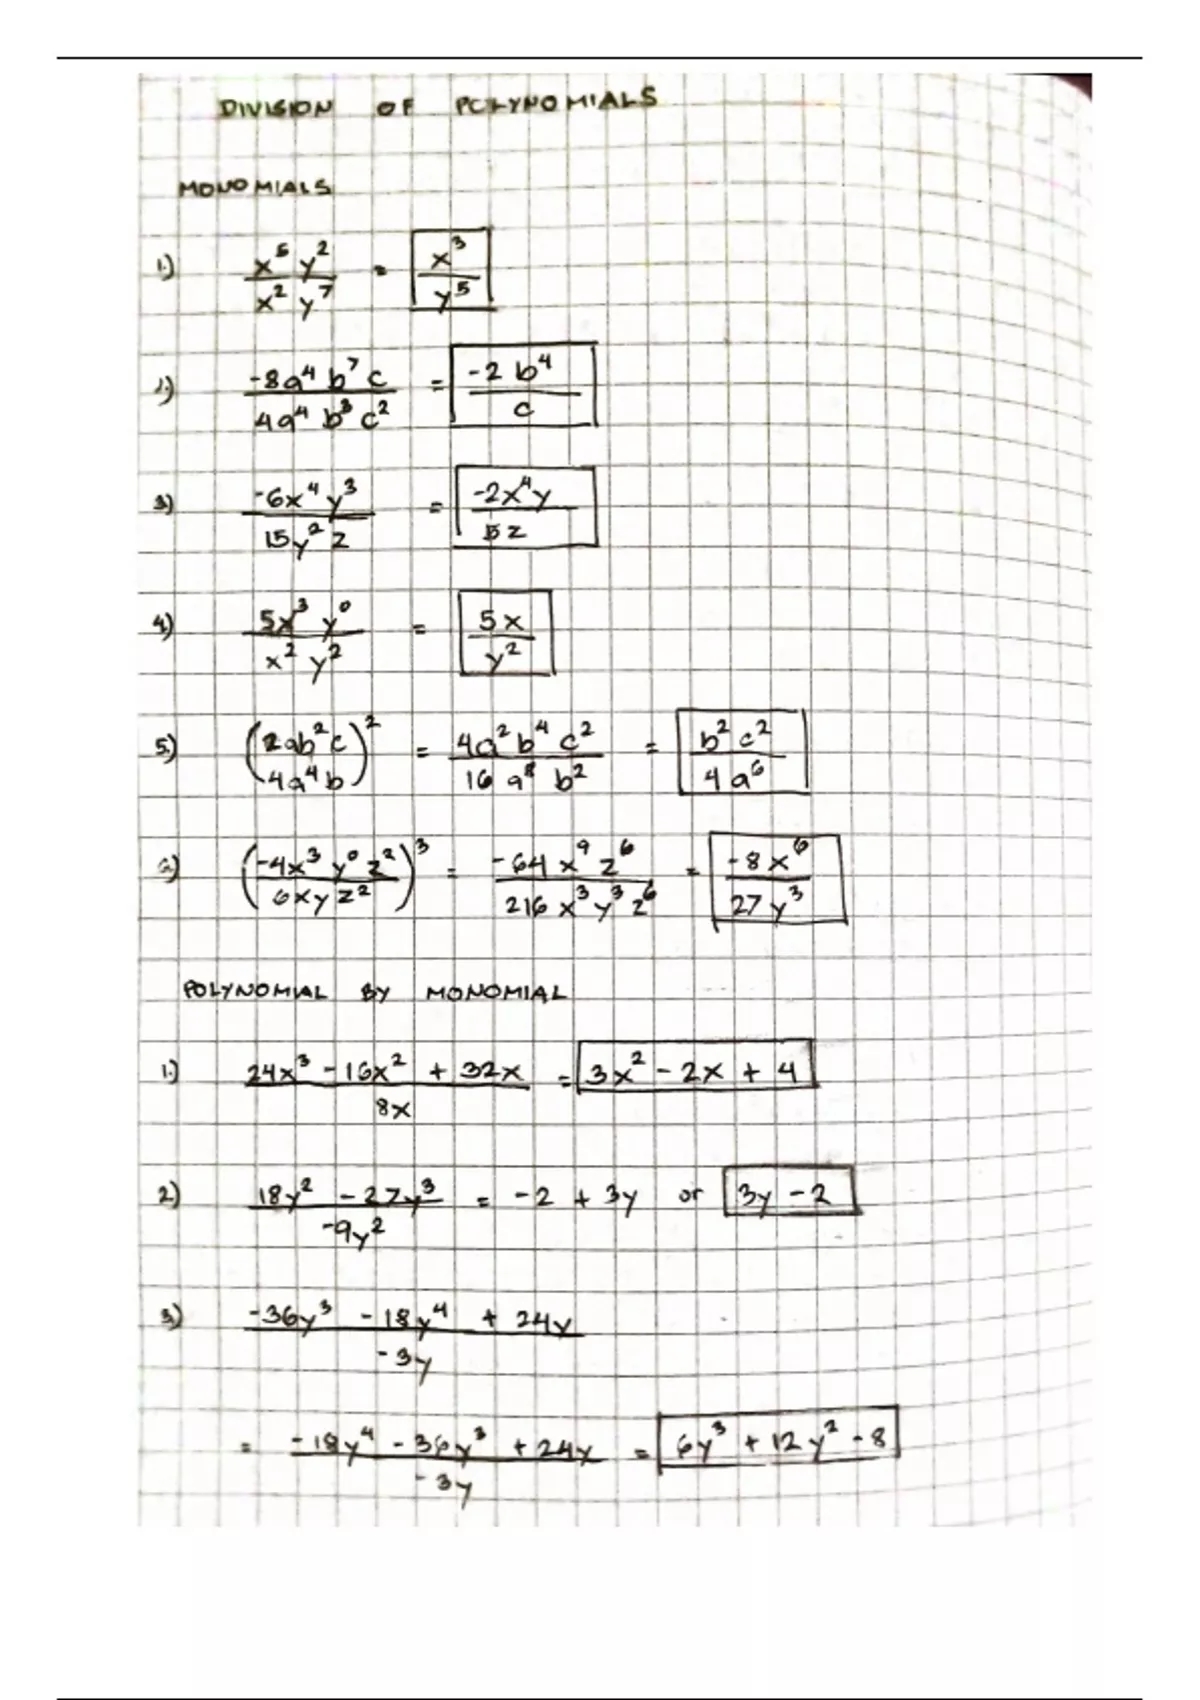 DIVISION OF POLYNOMIALS
MONOMIALS
1.) x⁵ y² / x² y⁷ = x³ / y⁵
2.) -8a⁴ b⁷ c / 4a⁴ b³ c² = -2 b⁴ / c
3.) -6x⁴ y³ / 15y² z = -2x⁴y / 5z
4.) 5x³ y⁰ / x² y² = 5x / y²
5.) (2ab²c / 4a⁴b)² = 4a² b⁴ c² / 16 a⁸ b² = b² c² / 4a⁶
6.) (-4x³ y⁰ z² / 6xyz²)³ = -64 x⁹ z⁶ / 216 x³ y³ z⁶ = -8x⁶ / 27y³
POLYNOMIAL BY MONOMIAL
1.) 24x³ - 16x² + 32x / 8x = 3x² - 2x + 4
2.) 18y² - 27y³ / -9y² = -2 + 3y or 3y - 2
3.) -36y³ - 18y⁴ + 24y / -3y
= -18y⁴ - 36y³ + 24y / -3y = 6y³ + 12y² - 8